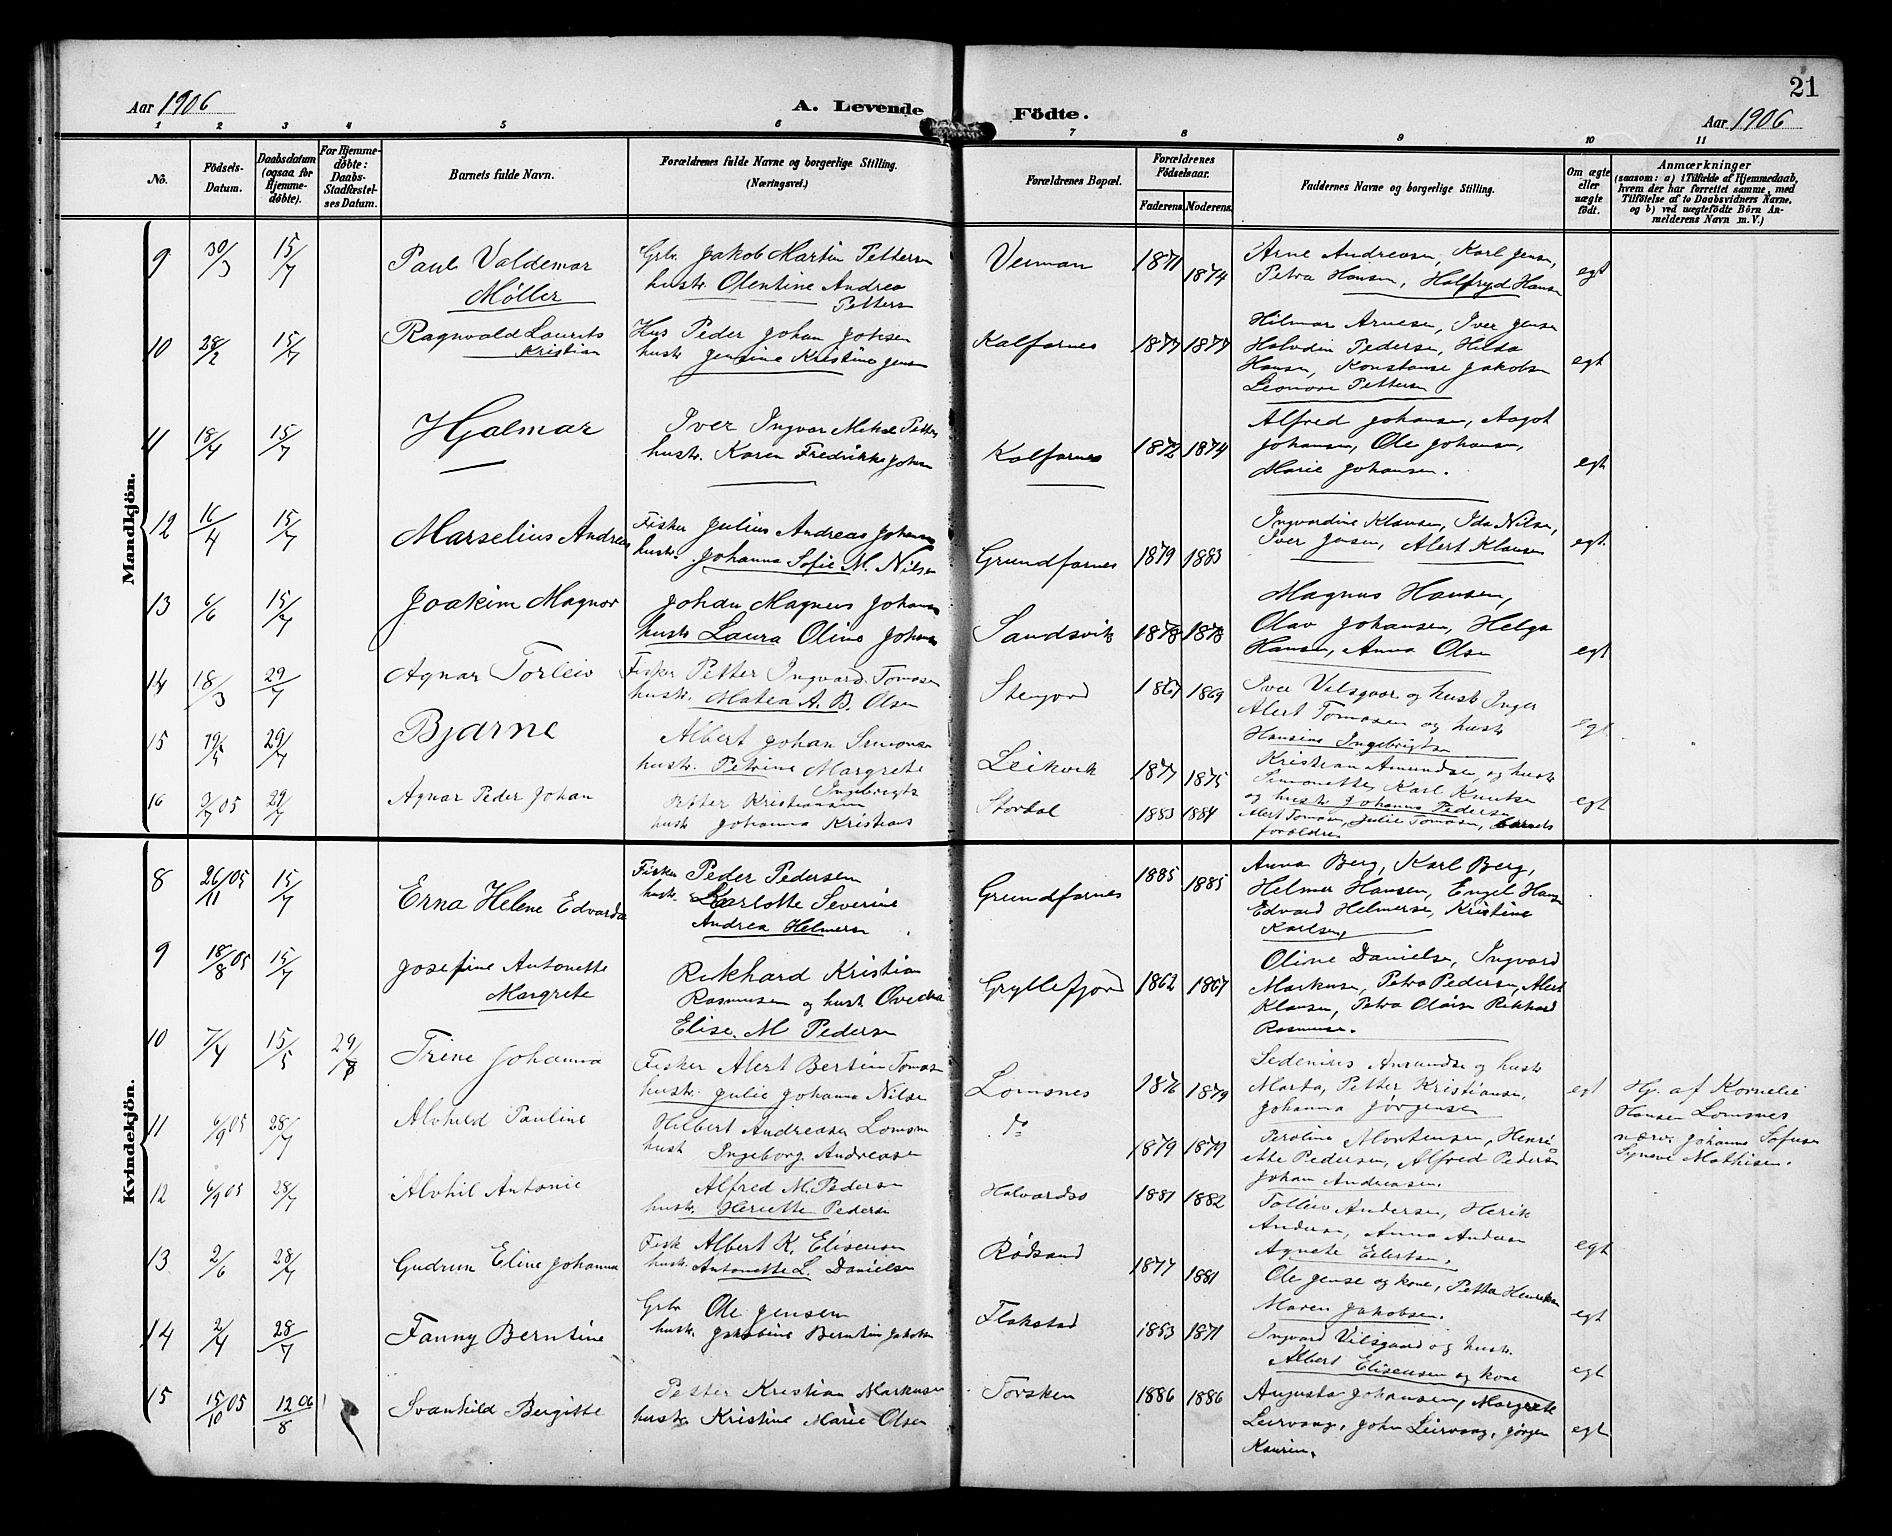 21
Aar 1906
A. Levende Födte.
Aar 1906
1 2 3 4 5 6 7 8 9 10 11
No.
Födsels-Datum.
Daabsdatum (ogsaa for Hjemmedøbte).
For Hjemmedøbte: Daabs-Stadfæstelses Datum.
Barnets fulde Navn.
Forældrenes fulde Navne og borgerlige Stilling. (Næringsvei.)
Forældrenes Bopæl.
Forældrenes Födselsaar.
Faderens. Moderens.
Faddernes Navne og borgerlige Stilling.
Om ægte eller uægte født.
Anmærkninger
(saasom: a) i Tilfælde af Hjemmedaab, hvem der har forrettet samme, med Tilføielse af to Daabsvidners Navne, og b) ved uægtefødte Börn Anmelderens Navn m. V.)
Mandkjön.
9 30/3 15/7 Paul Valdemar Møller
Grbr. Jakob Martin Pettersn
hustr. Olentine Andrea Petters
1871 1874
Arne Andreasen, Karl Jensen,
Petra Hansen, Halfryd Hansn
egt
10 28/2 15/7 Ragnvald Laurits Kristian
Hus Peder Johan Johsen
hustr. Jensine Kristine Jensn
Kalfarnes 1877 1877
Hilmar Arnesen, Iver Jensn
Halvdin Pedersen, Hilda
Hansen, Konstanse Jakobsn
Leonora Pettersn
egt
11 18/4 15/7 Hjalmar
Iver Ingvar Mikal Petters
hustr. Karen Fredrikke Johsn
Kalfarnes 1872 1874
Alfred Johansen, Aagot
Johansen, Ole Johansen,
Marie Johansen.
egt
12 16/4 15/7 Marselius Andreas
Fisker Julius Andreas Johansn
hustr. Johanna Sofie M. Nilsen
Grundfarnes 1879 1883
Ingvardine Klausen, Ida Nilsen,
Iver Jensen, Alert Klausen
egt.
13 6/6 15/7 Joakim Magnor
Johan Magnus Johansn
hustr Laura Oline Johansn
Sandsvik 1878 1878
Magnus Hansen,
Olav Johansen, Helga
Hansen, Anna Olsen
egt
14 18/3 29/7 Agnar Torleiv
Fisker Petter Ingvard Tomasen
hustr. Matea A. B. Olsen
1867 1869
Iver Vilsgaar og hustr Inger
Alert Tomasen og hustr
Hansine Ingebrigtsn
egt
15 29/7 Bjarne
Albert Johan Simonsen
hustr. Petrine Margrete Ingebrigts
Leikvik 1877 1875
Kristian Amundsen og hustr
Simonette, Karl Knutsen
og hustr Johanna Pedersen
egt
16 05 29/7 Agnar Peder Johan
Petter Kristiansen
hustr Johanna Kristians
Stordal 1883 1884
Alert Tomasen, Julie Tomasen, barnets
forældre
Kvindekjön.
8 26/11 05 15/7 Erna Helene Edvarda
Fisker Peder Pedersen
hustr. Karlotte Severine
Andrea Helmersn
Grundfarnes 1885 1885
Anna Berg, Karl Berg,
Helmer Hansen, Engel Hansn
Edvard Helmersen, Kristine
Karlsen,
9 18/8 05 15/7 Josefine Antonette Margrete
Rikhard Kristian
Rasmusen og hustr Ovedia
Elise. M Pedersen
Gryllefjord 1862 1867
Oline Danielsen, Ingvard
Markusen, Petra Pedersen, Alert
Klausen, Petra Olaisn Rikhard
Rasmusen.
10 7/4 15/5 29/7 Trine Johanna
Fisker Alert Bertin Tomasn
hustr. Julie Johanna Nilsen
Lomsnes 1876 1879
Sedenius Amundsen og hustr
Marta, Petter Kristiansen,
Johanna Jørgensen
egt
Hj. af Kornelie
Hansen Lomsnes
nærv. Johanna Sofusen
Synøve Mathisen.
11 6/9 05 28/7 Alvhild Pauline
Hilbert Andreasen
hustr Ingeborg Andreasen
do 1879 1879
Perolina Mortensen, Henri
ette Pedersen, Alfred Pedersn
Johan Andreasen.
12 6/9 05 28/7 Alvhil Antonie
Alfred M. Pedersn
hustr. Henriette Pedersn
1881 1882
Tolleiv Andersen, Henrik
Andersen, Anna Andersn
Agnete Eilertsn.
egt
13 2/6 28/7 Gudrun Eline Johanna
Fisk Albert K. Elisensen
hustr. Antonette L. Danielsen
Rødsand 1877 1881
Ole Jensen og kone, Petter Henriksn
Maren Jakobsen.
egt
14 2/4 28/7 Fanny Berntine
Grbr Ole Jensen
hustr. Jakobine Berntin Jakobsn
Flakstad 1853 1871
Ingvard Vilsgaard og hustr.
Albert Elisensen og kone
egt
15 15/10 05 12/8 06 Svanhild Bergitte
Petter Kristian Markusen
hustr. Kristine Marie Olsen
Torsken 1886 1886
Augusta Johansen, Margrete
Leirvaag, John Leirvaag, Jørgen
Kaurin.
egt